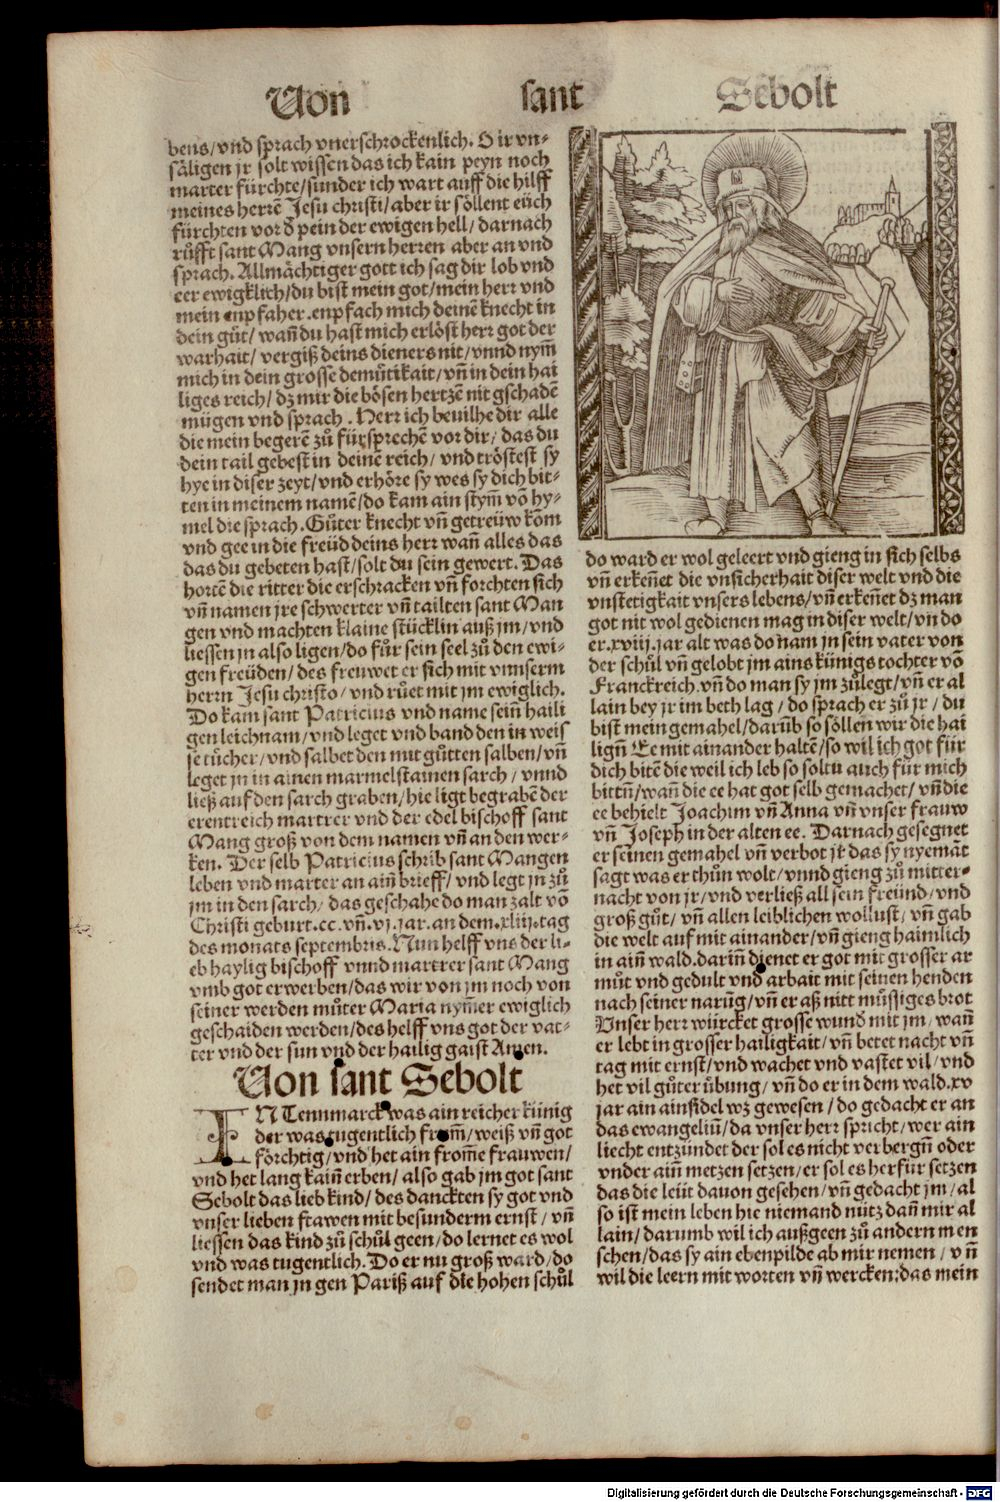 Von sant Sebolt
bens/vnd sprach vnerschrockenlich. O ir vn-
såligen jr solt wissen das ich kain peyn noch
marter fürchte/sunder ich wart auff die hilff
meines herrẽ Jesu christi/aber ir söllent eüch
fürchten vor d̕ pein der ewigen hell/darnach
růfft sant Mang vnsern herren aber an vnd
sprach. Allmåchtiger gott ich sag dir lob vnd
eer ewigklich/du bist mein got/mein herr vnd
mein enpfaher.enpfach mich deinẽ knecht in
dein gůt/wañ du hast mich erlöst herr got der
warhait/vergiß deins dieners nit/vnnd nym̃
mich in dein grosse demůtikait/vñ in dein hai
liges reich/dz mir die bösen hertzẽ nit gschadẽ
mügen vnd sprach. Herr ich beuilhe dir alle
die mein begerẽ zů fürsprechẽ vor dir/das du
dein tail gebest in deinẽ reich/vnd tröstest sy
hye in diser zeyt/vnd erhöre sy wes sy dich bit-
ten in meinem namẽ/do kam ain stym̃ võ hy-
mel die sprach. Gůter knecht vñ getreüw kõm
vnd gee in die freüd deins herr wañ alles das
das du gebeten hast/solt du sein gewert. Das
hortẽ die ritter die erschracken vñ forchten sich
vñ namen jre schwerter vñ tailten sant Man
gen vnd machten klaine stücklin auß jm/vnd
liessen jn also ligen/do fůr sein seel zů den ewi-
gen freüden/des freuwet er sich mit vnnserm
herrn Jesu christo/vnd růet mit jm ewiglich.
Do kam sant Patricius vnd name seiñ haili
gen leichnam/vnd leget vnd band den in weis
se tücher/vnd salbet den mit gůtten salben/vñ
leget jn in ainen marmelstainen sarch/vnnd
ließ auf den sarch graben/hie ligt begrabẽ der
erentreich martrer vnd der edel bischoff sant
Mang groß von dem namen vñ an den wer-
ken. Der selb Patricius schrib sant Mangen
leben vnd marter an aiñ brieff/vnd legt jn zů
jm in den sarch/das geschahe do man zalt võ
Christi geburt.cc.vñ.vj.jar.an dem.xliij.tag
des monats septembris. Nun helff vns der li-
eb haylig bischoff vnnd martrer sant Mang
vmb got erwerben/das wir von jm noch von
seiner werden můter Maria nym̃er ewiglich
geschaiden werden/des helff vns got der vat-
ter vnd der sun vnd der hailig gaist Amen.
Von sant Sebolt
IN Tennmarck was ain reicher künig
der was tugentlich from̃/weiß vñ got
förchtig/vnd het ain from̃e frauwen/
vnd het lang kaiñ erben/also gab jm got sant
Sebolt das lieb kind/des danckten sy got vnd
vnser lieben frawen mit besunderm ernst/vñ
liessen das kind zů schůl geen/do lernet es wol
vnd was tugentlich. Do er nu groß ward/do
sendet man jn gen Pariß auf die hohen schůl
do ward er wol geleert vnd gieng in sich selbs
vñ erkeñet die vnsicherhait diser welt vnd die
vnstetigkait vnsers lebens/vñ erkeñet dz man
got nit wol gedienen mag in diser welt/vñ do
er.xviij.jar alt was do nam jn sein vater von
der schůl vñ gelobt jm ains künigs tochter võ
Franckreich.vñ do man sy jm zůlegt/vñ er al
lain bey jr im beth lag/do sprach er zů jr/du
bist mein gemahel/darũb so söllen wir die hai
ligñ Ee mit ainander haltẽ/so wil ich got für
dich bitẽ die weil ich leb so soltu auch für mich
bittñ/wañ die ee hat got selb gemachet/vñ die
ee behielt Joachim vñ Anna vñ vnser frauw
vñ Joseph in der alten ee. Darnach gesegnet
er seinen gemahel vñ verbot jr das sy nyemãt
sagt was er thůn wolt/vnnd gieng zů mitter-
nacht von jr/vnd verließ all sein freünd/vnd
groß gůt/vñ allen leiblichen wollust/vñ gab
die welt auf mit ainander/vñ gieng haimlich
in aiñ wald.dariñ dienet er got mit grosser ar
můt vnd gedult vnd arbait mit seinen henden
nach seiner narũg/vñ er aß nitt müssiges brot
Vnser herr würcket grosse wund̕ mit jm/wañ
er lebt in grosser hailigkait/vñ betet nacht vñ
tag mit ernst/vnd wachet vnd vastet vil/vnd
het vil gůter übung/vñ do er in dem wald.xv
jar ain ainsidel wz gewesen/do gedacht er an
das ewangeliũ/da vnser herr spricht/wer ain
liecht entzündet der sol es nicht verbergñ oder
vnder aiñ metzen setzen/er sol es herfür setzen
das die leüt dauon gesehen/vñ gedacht jm/al
so ist mein leben hie niemand nütz dañ mir al
lain/darumb wil ich außgeen zů andern men
schen/das sy ain ebenpilde ab mir nemen/vñ
wil die leern mit worten vñ wercken:das mein
Digitalisierung gefördert durch die Deutsche Forschungsgemeinschaft - DFG